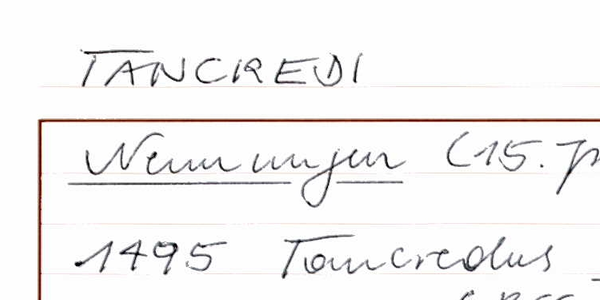 TANCREDI
Nennungen (15.
1495 Tancredus